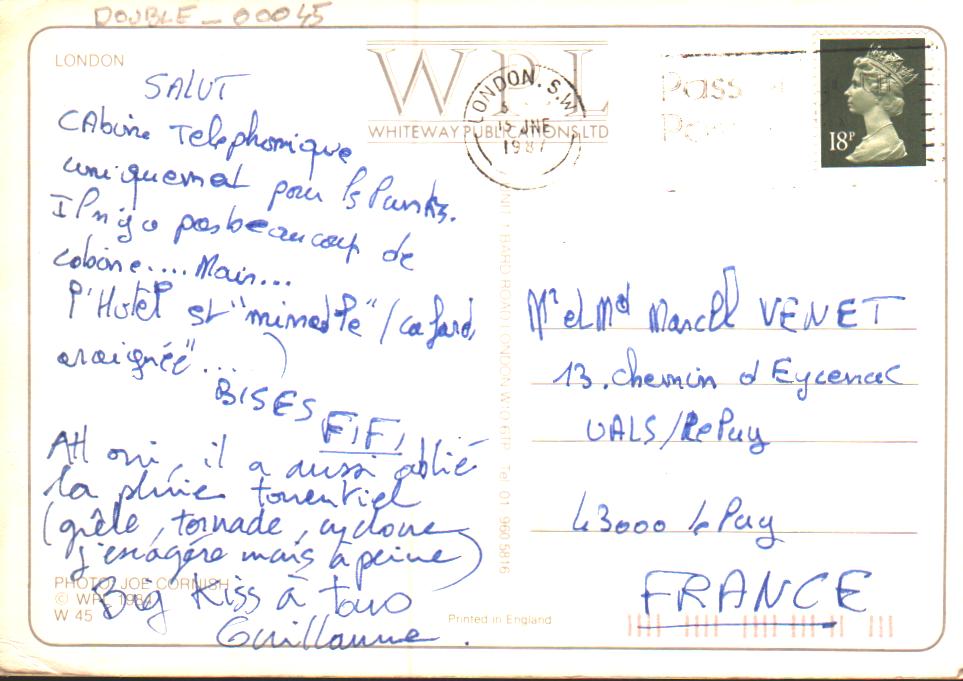 DOUBLE_00045
LONDON
WPL
WHITEWAY PUBLICATIONS LTD
LONDON. S.W.
15 JNE
1987
Pass
18P
SALUT
CABine Telephonique
uniquement pour ls Punks.
Il n'y a pas beaucoup de
cabine.... Mais...
l'Hotel est "minable"/cafard,
araignée"...
BISES
FIFI
AH oui, il a aussi oublié
la pluie torrentiel
(grêle, tornade, cyclone
j'exagére mais à peine)
Big Kiss à tous
Guillaume.
Mr et Md Marcel VENET
13. chemin d Eycenac
VALS/le Puy
43000 le Puy
FRANCE
UNIT 1 BARD ROAD LONDON W10 6TP Tel 01 960 5816
PHOTO: JOE CORNISH
© WPL 1984
W 45
Printed in England